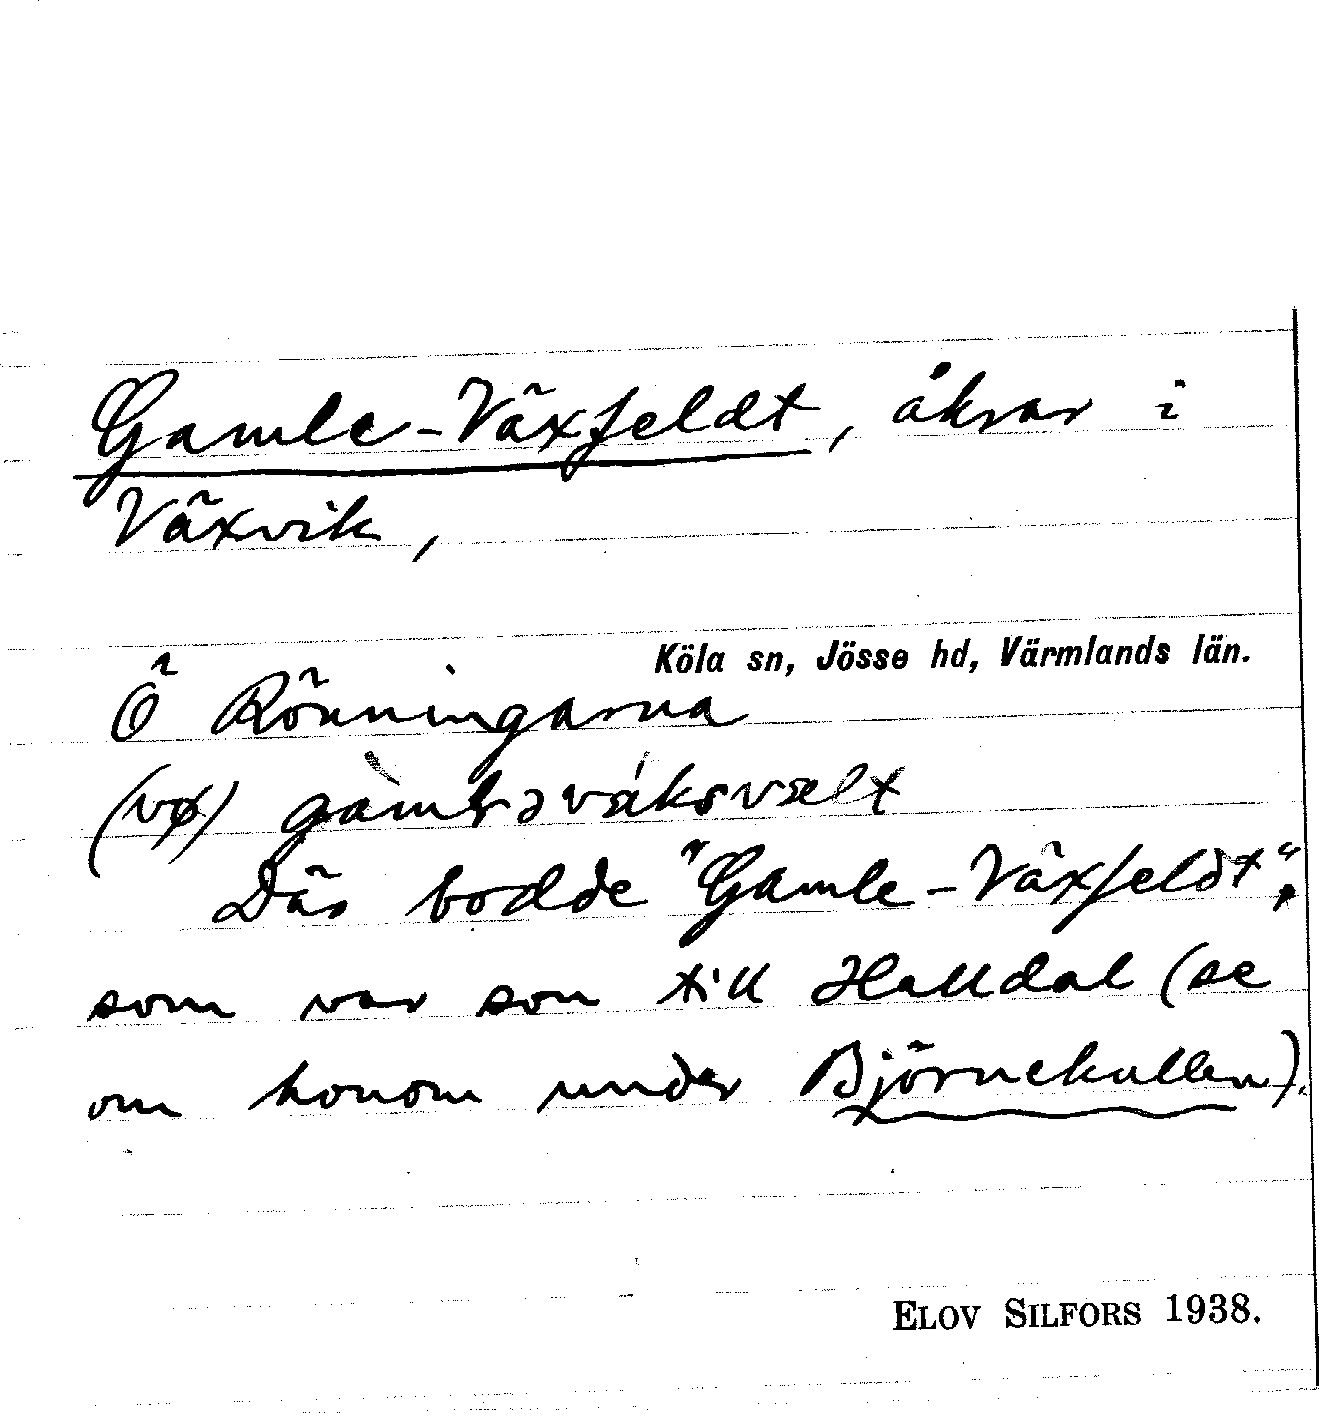 Gamle-Växfeldt, åkrar i
Växvik,
Köla sn, Jösse hd, Värmlands län.
Ö Rönningarna
(vø)
Där bodde "Gamle-Växfeldt",
som var son till Halldal (se
om honom under Björnekullen).
ELOV SILFORS 1938.